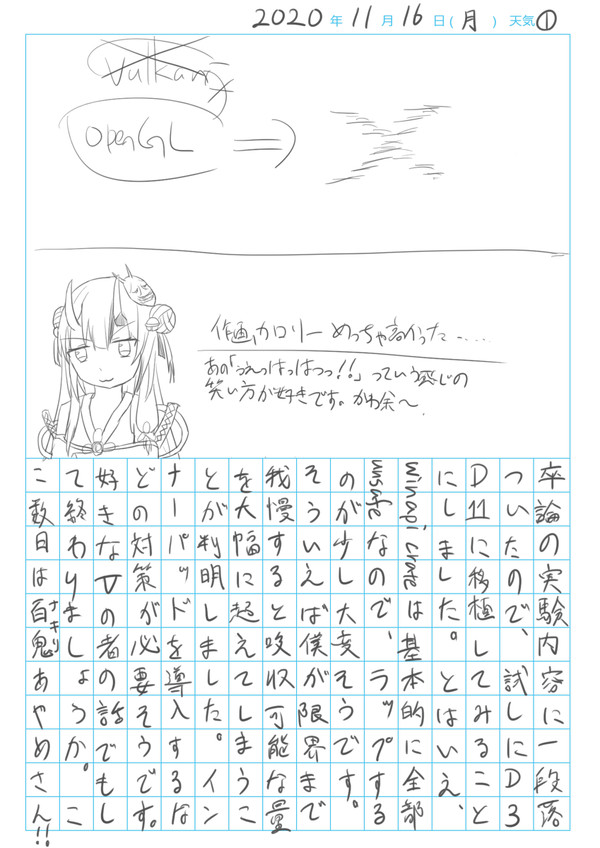 2020年11月16日(月) 天気①
Vulkan
OpenGL ⇒
作画カロリーめっちゃ高かった……
あの「うえっはっはっっ!!」っていう感じの
笑い方が好きです。かわ余〜
卒論の実験内容に一段落
ついたので、試しにD3
D11に移植してみること
にしました。とはいえ、
winapi crateは基本的に全部
unsafeなので、ラップする
のが少し大変そうです。
そういえば僕が限界まで
我慢すると吸収可能な量
を大幅に超えてしまうこ
とが判明しました。イン
ナーパッドを導入するな
どの対策が必要そうです。
好きなVの者の話でもし
て終わりましょうか。こ
こ数日は百鬼あやめさん!!
ナキリ